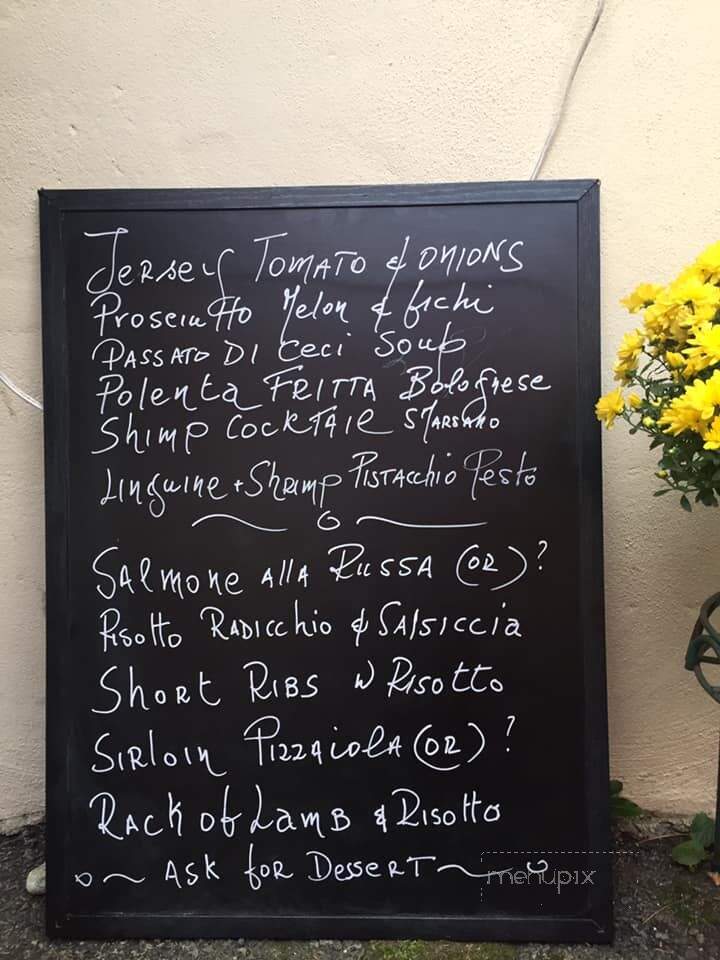 Jersey Tomato & Onions
Prosciutto Melon & fichi
Passato Di Ceci Soup
Polenta Fritta Bolognese
Shimp Cocktail S Marsano
Linguine + Shrimp Pistacchio Pesto
Salmone alla Russa (or)?
Risotto Radicchio & Salsiccia
Short Ribs w Risotto
Sirloin Pizzaiola (or)?
Rack of Lamb & Risotto
Ask for Dessert
menupix